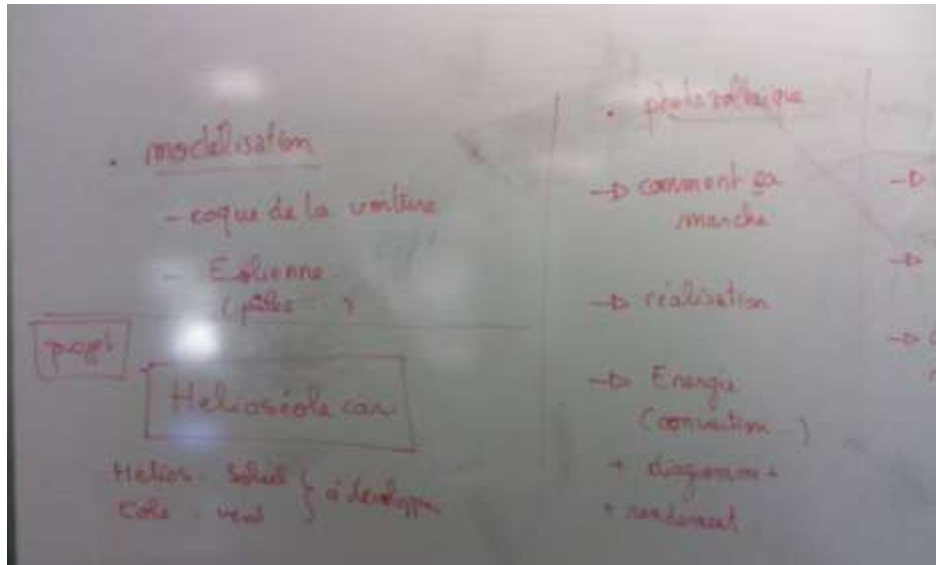 . modélisation
- coque de la voiture
- Eolienne
(pâles )
projet
Helioséole car
Helios : Soleil } à développer
Eole : vent
. photovoltaique
-> comment ça
marche
-> réalisation
-> Energie
( )
+ diagramme +
+ rendement
->
->
->